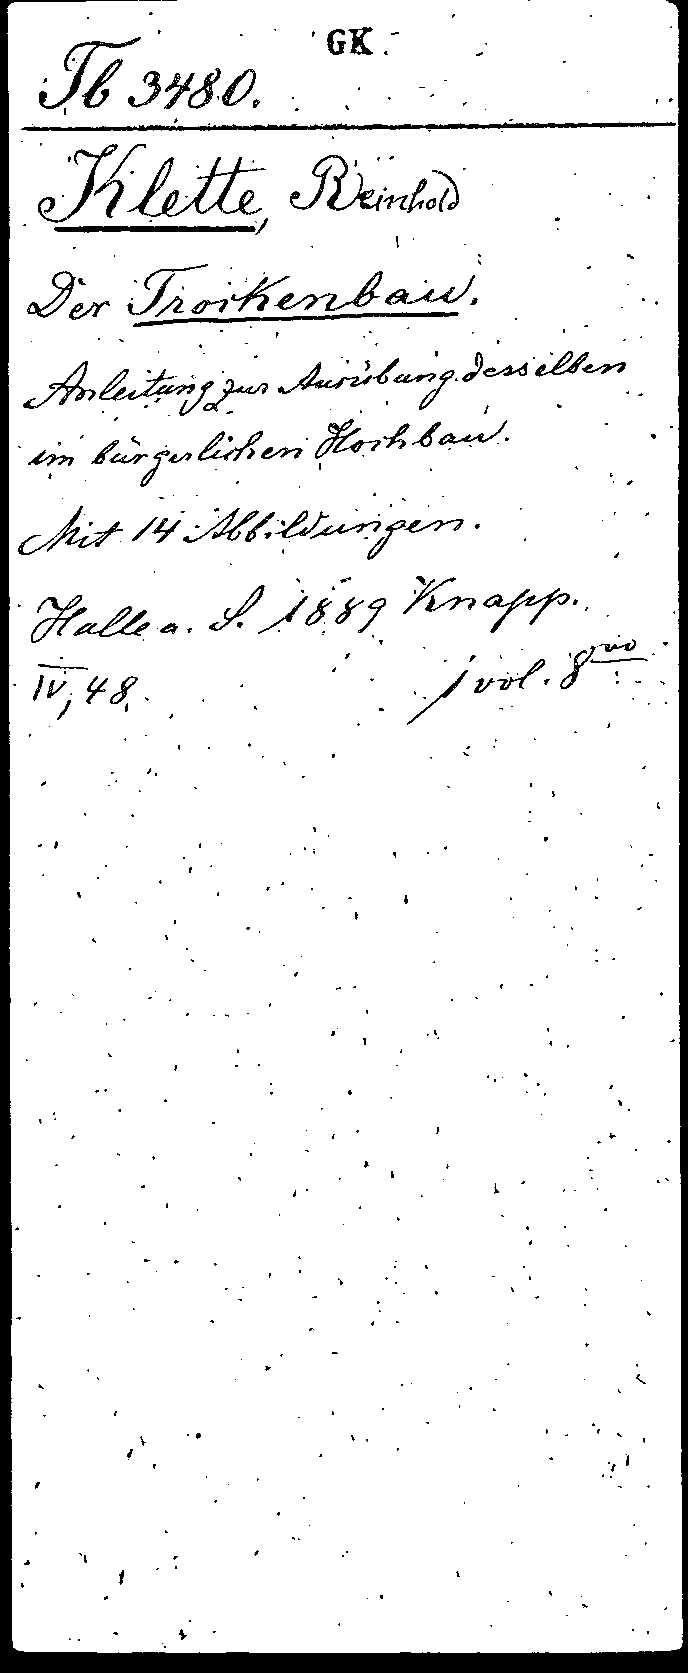 GK
Tb 3480.
Klette, Reinhold
Der Trockenbau.
Anleitung zur Ausübung desselben
im bürgerlichen Hochbau.
Mit 14 Abbildungen.
Halle a. S. 1889 Knapp.
IV, 48. 1 vol. 8vo